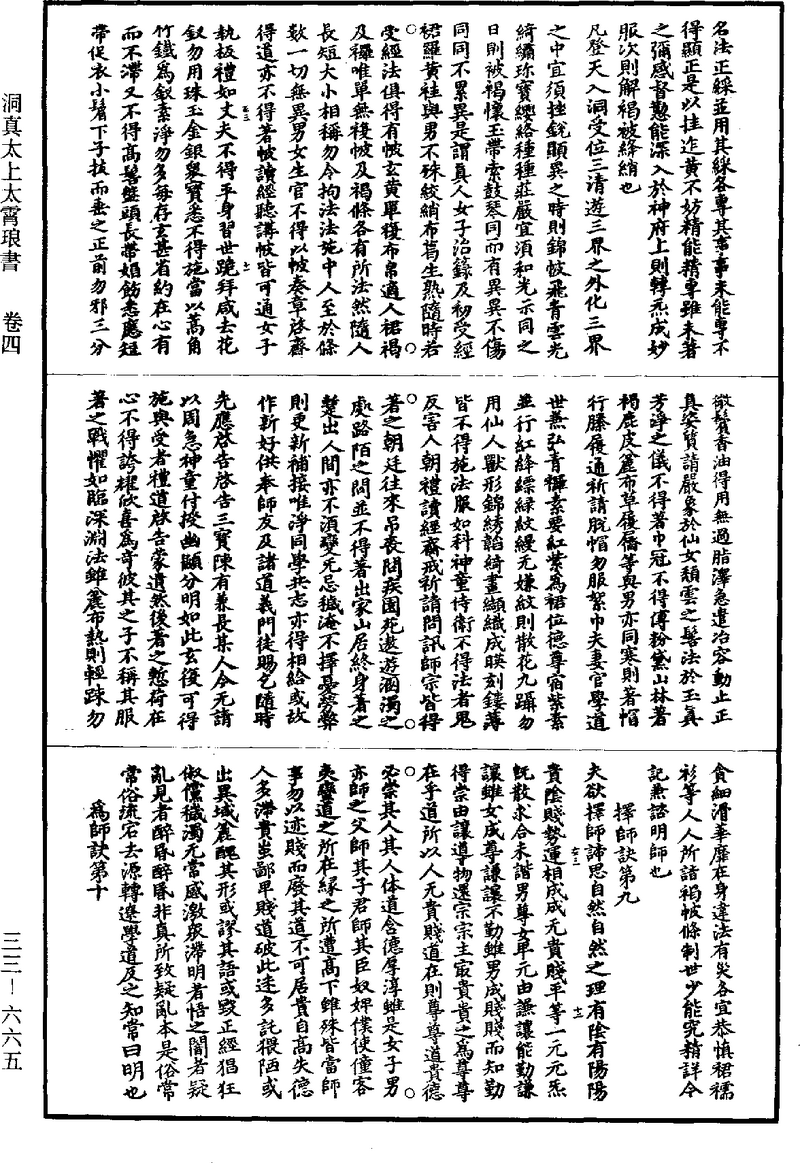 洞真太上太霄琅書　卷四
三三—六六五
名法正綵並用其綵各專其事事未能專不
得顯正是以挂迮黃不妨精能精專雖未著
之彌感督懃能深入於神府上則轉炁成妙
服次則解褐被絳綃也
凡登天入洞受位三清遊三界之外化三界
之中宜須挫銳顯異之時則錦帔飛青雲光
綺繡珎寶纓絡種種莊嚴宜須和光示同之
日則被褐懷玉帶索鼓琴同而有異異不傷
同同不累異是謂真人女子治籙及初受經
裙羅黃袿與男不殊絞綃布葛生熟隨時若
受經法俱得有帔玄黃單複布帛適人裙褐
及襪唯單無複帔及褐條各有所法然隨人
長短大小相稱勿令拘法法施中人至於條
數一切無異男女生官不得以帔奏章啓齋
得道亦不得著帔讀經聽講帔皆可通女子
執板禮如丈夫不得平身習世跪拜咸去花
釵勿用珠玉金銀眾寶悉不得施當以高角
竹鐵為釵素淨勿多每存玄甚省約在心有
而不滯又不得高髻盤頭長帶媚飾悉應短
帶促衣小鬟下子拔而垂之正前勿邪三分
斂鬢香油得用無過脂澤急遣冶容動止正
真姿質請嚴象於仙女頹雲之髻法於玉真
芳淨之儀不得著巾冠不得傅粉黛山林著
褐鹿皮麤布草履屩等與男亦同寒則著帽
行縢履通祈請脫帽勿服絮巾夫妻官學道
世無弘青襈素要紅紫為裙位德尊宿紫素
並行紅絳縹綠紋縵无嫌紋則散花九躡勿
用仙人獸形錦綉韜綺畫纈織成暎刻鏤薄
皆不得施法服如科神童侍衛不得法者鬼
反害人朝禮讀經齋戒祈請問訊師宗皆得
著之朝廷往來吊喪問疾園死遨遊涵濁之
處路陌之間並不得著出家山居終身著之
楚出人間亦不須變无忌穢淹不擇憂勞弊
則更新補接唯淨同學共志亦得相給或故
作新好供奉師友及諸道義門徒賜乞隨時
先應啓告啓告三寶陳有兼長某人合元請
以周急神童付授幽顯分明如此玄後可得
施與受者禮道啓告蒙遺然後著之慙荷在
心不得誇耀欣喜為奇彼其之子不稱其服
著之戰懼如臨深淵法雖麤布熟則輕踈勿
貪細滑華靡在身違法有災各宜恭慎裙襦
衫等人人所諳褐帔條制世少能究精詳今
記兼諮明師也
擇師訣第九
夫欲擇師諦思自然自然之理有陰有陽陽
貴陰賤勢運相成成元貴賤平等一元元炁
既散求合未諧男尊女卑元由謙讓能勤謙
讓雖女成尊謙讓不勤雖男成賤賤而知勤
得崇由讓道導物還宗宗主最貴貴之為尊尊
在乎道所以人无貴賤道在則尊尊道貴德
必崇其人其人体道含德厚淳雖是女子男
亦師之父師其子君師其臣奴婢僕使僮客
夷蠻道之所在緣之所遭高下雖殊皆當師
事勿以迹賤而廢其道不可居貴自高失德
人多滯貴蚩鄙卑賤道破此迷多託猥陋或
出異域麤醜其形或謬其語或毀正經猖狂
俶儻穢濁元當感激眾滯明者悟之闇者疑
亂見者醉昏醉昏非真所致疑亂本是俗常
常俗流宕去源轉遼學道反之知常曰明也
為師訣第十